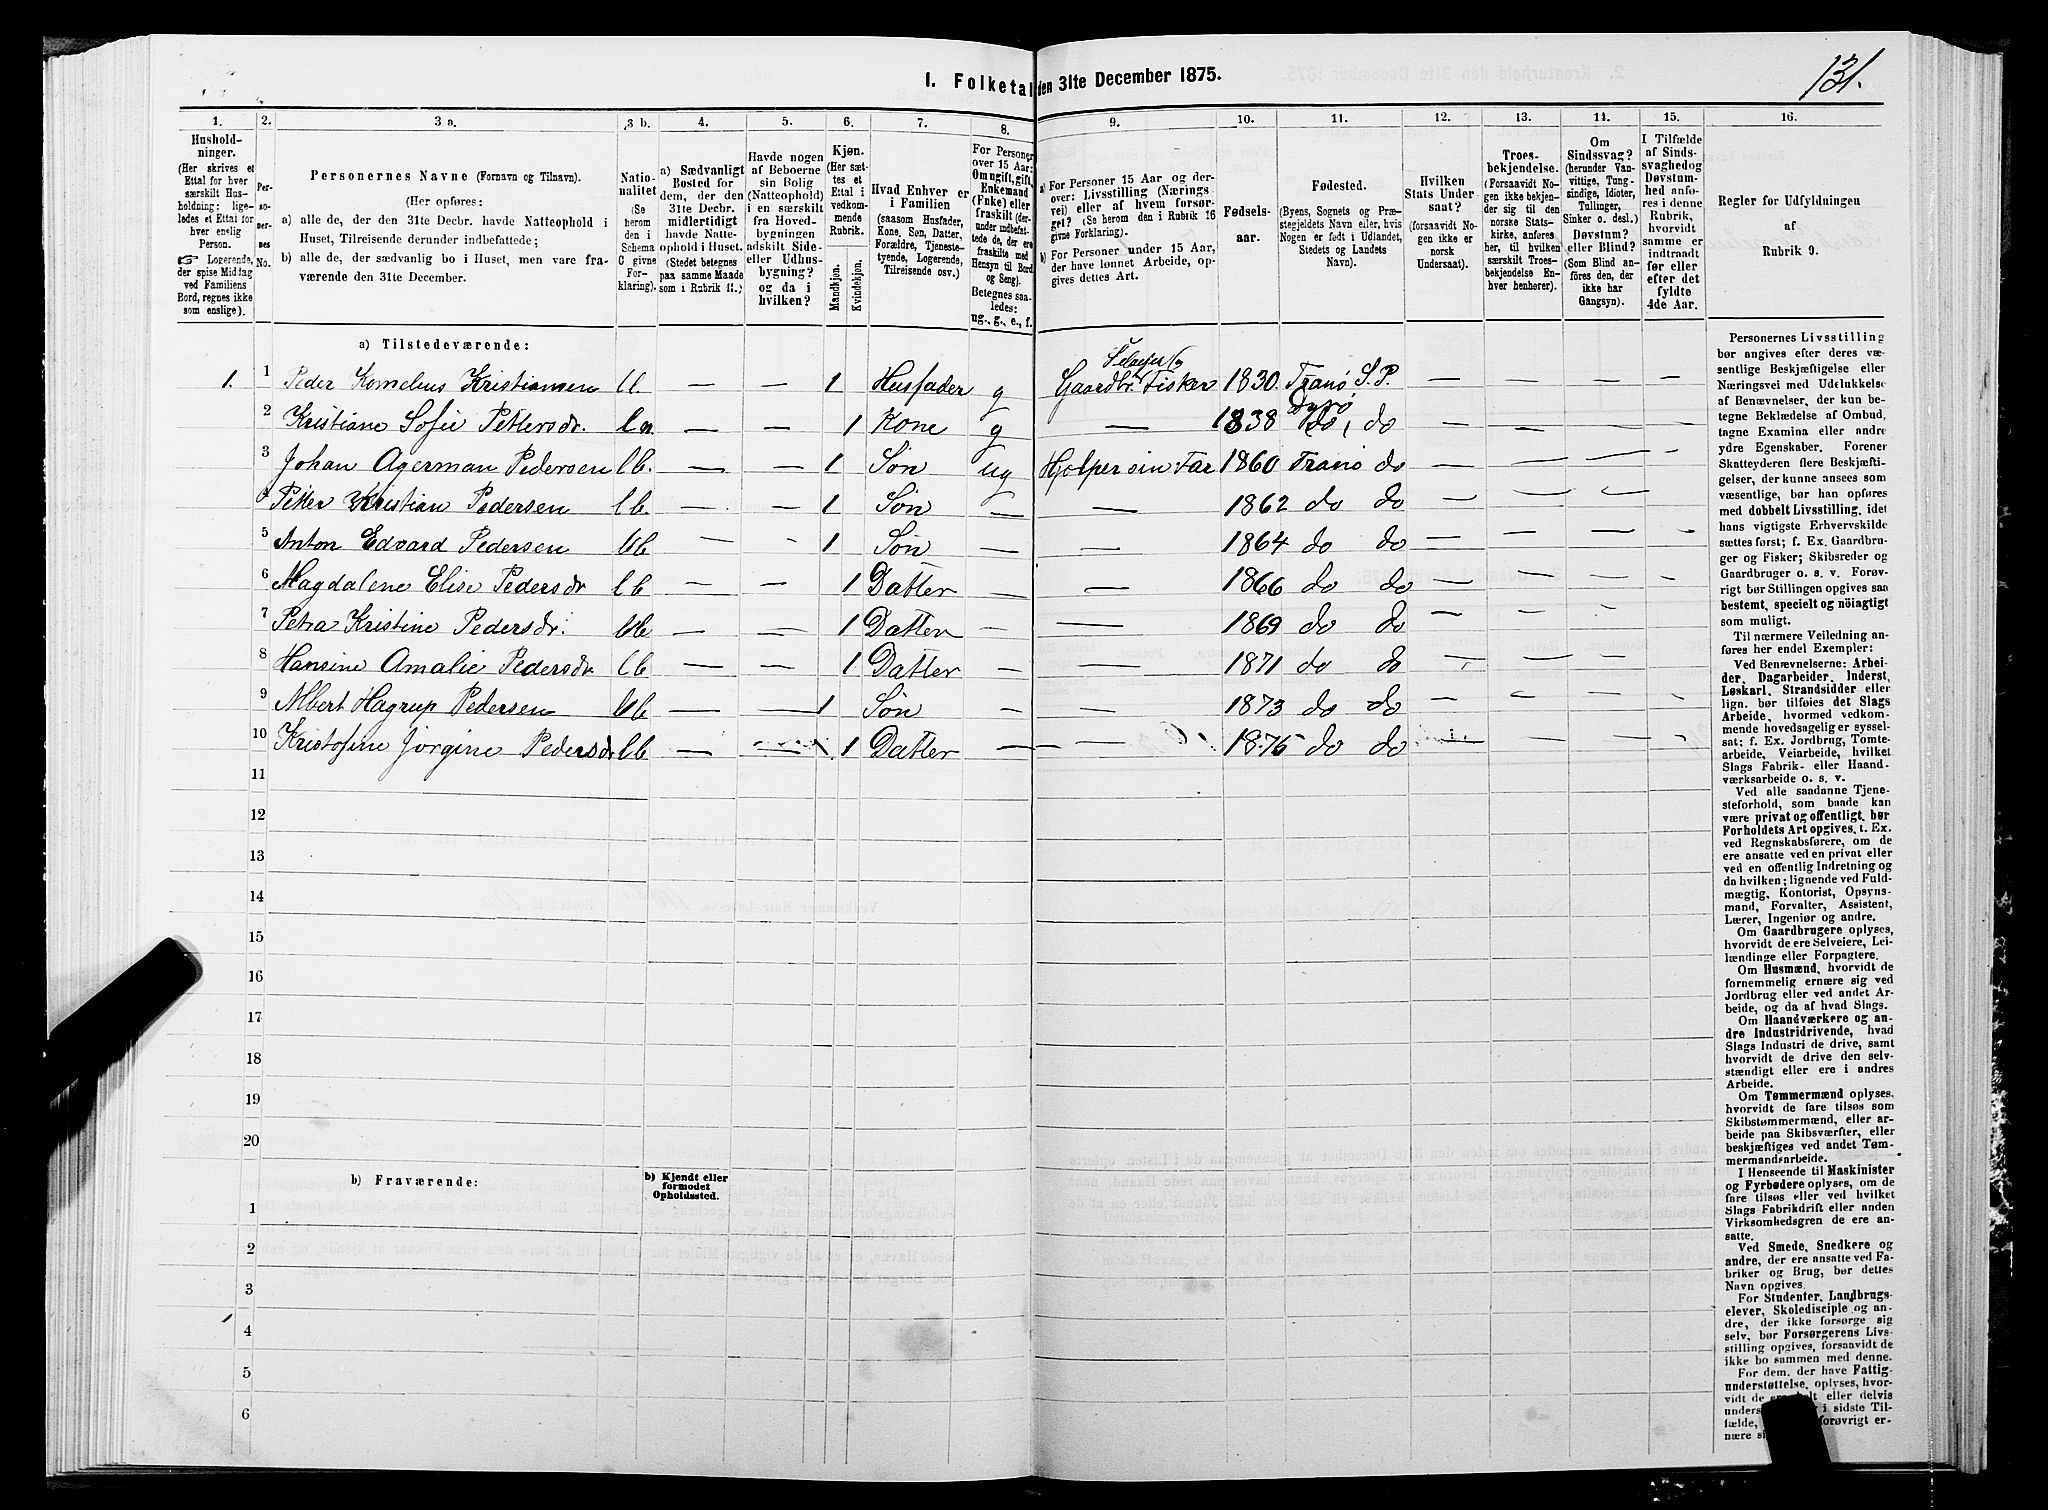 131.
1. Folketal den 31te December 1875.
1. 2. 3 a. 3 b. 4. 5. 6. 7. 8. 9. 10. 11. 12. 13. 14. 15. 16.
Hushold-
ninger.
(Her skrives et
Ettal for hver
særskilt Hus-
holdning; lige-
ledes et Ettal for
hver enslig
Person.
☞ Logerende,
der spise Middag
ved Familiens
Bord, regnes ikke
som enslige).
Per-
so-
ner-
nes
No.
Personernes Navne (Fornavn og Tilnavn).
(Her opføres:
a) alle de, der den 31te Decbr. havde Natteophold i
Huset, Tilreisende derunder indbefattede;
b) alle de, der sædvanlig bo i Huset, men vare fra-
værende den 31te December.
Natio-
nalitet
(Se
herom
den i
Schema
C givne
For-
klaring).
a) Sædvanligt
Bosted for
dem, der den
31te Decbr.
midlertidigt
havde Natte-
ophold i Huset.
(Stedet betegnes
paa samme Maade
som i Rubrik 11.)
Havde nogen
af Beboerne
sin Bolig
(Natteophold)
i en særskilt
fra Hoved-
bygningen
adskilt Side-
eller Udhus-
bygning?
og da i
hvilken?
Kjøn.
(Her sæt-
tes et
Ettal i
vedkom-
mende
Rubrik.
Mandkjøn.
Kvindekjøn.
Hvad Enhver er
i Familien
(saasom Husfader,
Kone, Søn, Datter,
Forældre, Tjeneste-
tyende, Logerende,
Tilreisende osv.)
For Personer
over 15 Aar:
Om ugift, gift,
Enkemand
(Enke) eller
fraskilt (der-
under indbefat-
tede de, der ere
fraskilte med
Hensyn til Bord
og Seng).
Betegnes saa-
ledes:
ug., g., e., f.
a) For Personer 15 Aar og der-
over: Livsstilling (Nærings-
vei) eller af hvem forsør-
get? (Se herom den i Rubrik 16
givne Forklaring).
b) For Personer under 15 Aar,
der have lønnet Arbeide, op-
gives dettes Art.
Fødsels-
aar.
Fødested.
(Byens, Sognets og Præ-
stegjeldets Navn eller, hvis
Nogen er født i Udlandet,
Stedets og Landets
Navn).
Hvilken
Stats Under-
saat?
(forsaavidt No-
gen ikke er
norsk
Undersaat).
Troes-
bekjendelse.
(Forsaavidt No-
gen ikke bekjen-
der sig til den
norske Stats-
kirke, anføres
her, til hvilken
særskilt Troes-
bekjendelse En-
hver henhører).
Om
Sindssvag?
(herunder Van-
vittige, Tung-
sindige, Idioter,
Tullinger,
Sinker o. desl.)
Døvstum?
eller Blind?
(Som Blind an-
føres den, der
ikke har
Gangsyn).
I Tilfælde
af Sinds-
svaghed og
Døvstum-
hed anfø-
res i denne
Rubrik,
hvorvidt
samme er
indtraadt
før eller
efter det
fyldte
4de Aar.
Regler for Udfyldningen
af
Rubrik 9.
a) Tilstedeværende:
1. 1 Peder Kornelius Kristiansen — — 1 Husfader g Gaardbr. Fisker 1830 Tranø S.P. — — — —
2 Kristiane Sofie Pettersdr. — — 1 Kone g — 1838 Dyrø do — — — —
3 Johan Agerman Pedersen lb. — — 1 Søn ug Hjelper sin Far 1860 Tranø do — — — —
4 Petter Kristian Pedersen lb. — — 1 Søn — — 1862 do do — — —
5 Anton Edvard Pedersen lb — — 1 Søn — — 1864 do do — — — —
6 Magdalene Elise Pedersdr lb — — 1 Datter — — 1866 do do — — — —
7 Petra Kristine Pedersdr. lb — — 1 Datter — — 1869 do do — — —
8 Hansine Amalie Pedersdr lb — — 1 Datter — — 1871 do do — — —
9 Albert Hagrup Pedersen lb — — 1 Søn — — 1873 do do — — — —
10 Kristofine Jørgine Pedersdr lb — — 1 Datter — — 1875 do do — — — —
11
12
13
14
15
16
17
18
19
20
b) Fraværende:
b) Kjendt eller
formodet
Opholdssted.
1
2
3
4
5
6
Personernes Livsstilling
bør angives efter deres væ-
sentlige Beskjæftigelse eller
Næringsvei med Udelukkelse
af Benævnelser, der kun be-
tegne Beklædelse af Ombud,
tagne Examina eller andre
ydre Egenskaber. Forener
Skatteyderen flere Beskjæfti-
gelser, der kunne ansees som
væsentlige, bør han opføres
med dobbelt Livsstilling, idet
hans vigtigste Erhvervskilde
sættes først; f. Ex. Gaardbru-
ger og Fisker; Skibsreder og
Gaardbruger o. s. v. Forøv-
rigt bør Stillingen opgives saa
bestemt, specielt og nöiagtigt
som muligt.
Til nærmere Veiledning an-
føres her endel Exempler:
Ved Benævnelserne: Arbei-
der, Dagarbeider, Inderst,
Løskarl, Strandsidder eller
lign. bør tilføies det Slags
Arbeide, hvormed vedkom-
mende hovedsagelig er syssel-
sat; f. Ex. Jordbrug, Tomte-
arbeide, Veiarbeide, hvilket
Slags Fabrik- eller Haand-
værksarbeide o. s. v.
Ved alle saadanne Tjene-
steforhold, som baade kan
være privat og offentligt, bør
Forholdets Art opgives, t. Ex.
ved Regnskabsførere, om de
ere ansatte ved en privat eller
ved en offentlig Indretning og
da hvilken; lignende ved Fuld-
mægtig, Kontorist, Opsyns-
mand, Forvalter, Assistent,
Lærer, Ingeniør og andre.
Om Gaardbrugere oplyses,
hvorvidt de ere Selveiere, Lei-
lændinge eller Forpagtere.
Om Husmænd, hvorvidt de
fornemmelig ernære sig ved
Jordbrug eller ved andet Ar-
beide, og da af hvad Slags.
Om Haandværkere og an-
dre Industridrivende, hvad
Slags Industri de drive, samt
hvorvidt de drive den selv-
stændigt eller ere i andres
Arbeide.
Om Tømmermænd oplyses,
hvorvidt de fare tilsøs som
Skibstømmermænd, eller ar-
beide paa Skibsværfter, eller
beskjæftiges ved andet Tøm-
mermandsarbeide.
I Henseende til Maskinister
og Fyrbødere oplyses, om de
fare tilsøs eller ved hvilket
Slags Fabrikdrift eller anden
Virksomhedsgren de ere an-
satte.
Ved Smede, Snedkere og
andre, der ere ansatte ved Fa-
briker og Brug, bør dettes
Navn opgives.
For Studenter, Landbrugs-
elever, Skoledisciple og an-
dre, der ikke forsørge sig
selv, bør Forsørgerens Livs-
stilling opgives, forsaavidt de
ikke bo sammen med denne.
For dem, der have Fattig-
understøttelse, oplyses, hvor-
vidt de eller delvis
i sidste Til-
forøvrigt er-